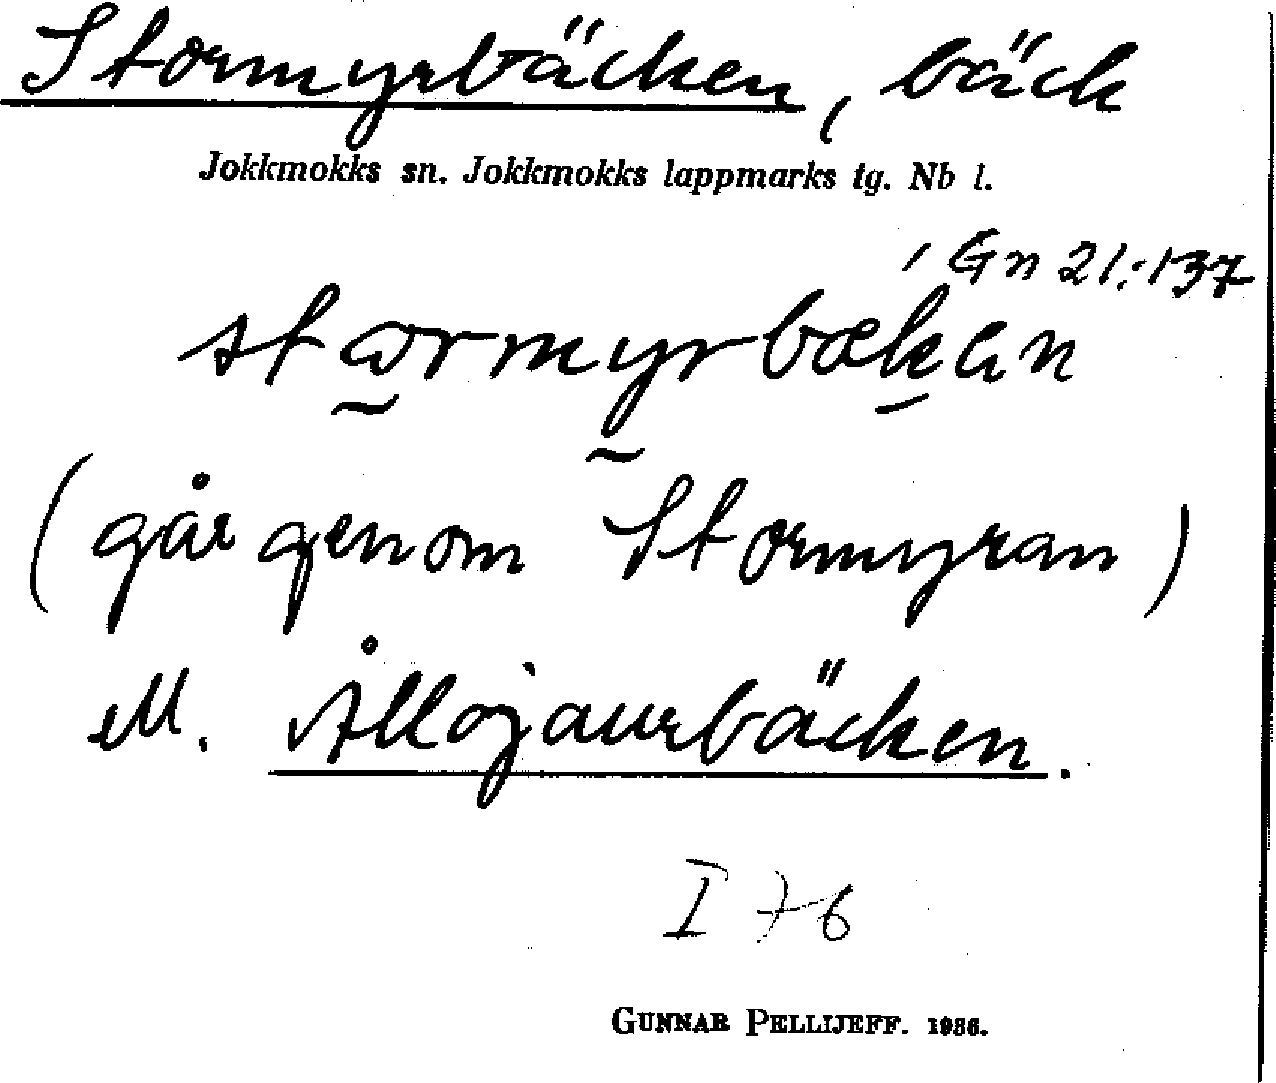 Stormyrbäcken, bäck
Jokkmokks sn. Jokkmokks lappmarks tg. Nb l.
Gn 21:137
stormyrbækan
(går genom Stormyran)
ell. Ållojaurbäcken.
I 76
GUNNAR PELLIJEFF. 1936.